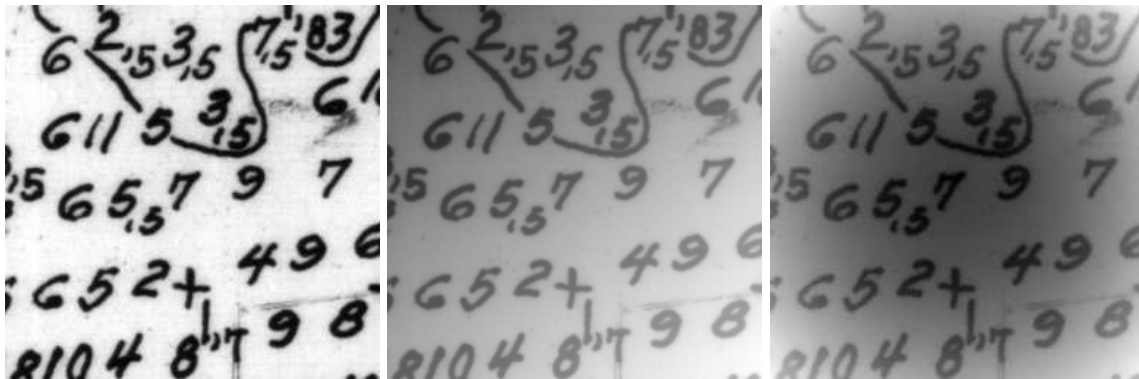 6 2,5 3,5 7,5 1,83
6 11 5 3,5 6
,5 6 5,5 7 9 7
6 5 2+ 4 9 6
810 4 8 1,7 9 8
6 2,5 3,5 7,5 1,83
6 11 5 3,5 6
,5 6 5,5 7 9 7
6 5 2+ 4 9 6
810 4 8 1,7 9 8
6 2,5 3,5 7,5 1,83
6 11 5 3,5 6
,5 6 5,5 7 9 7
6 5 2+ 4 9 6
810 4 8 1,7 9 8